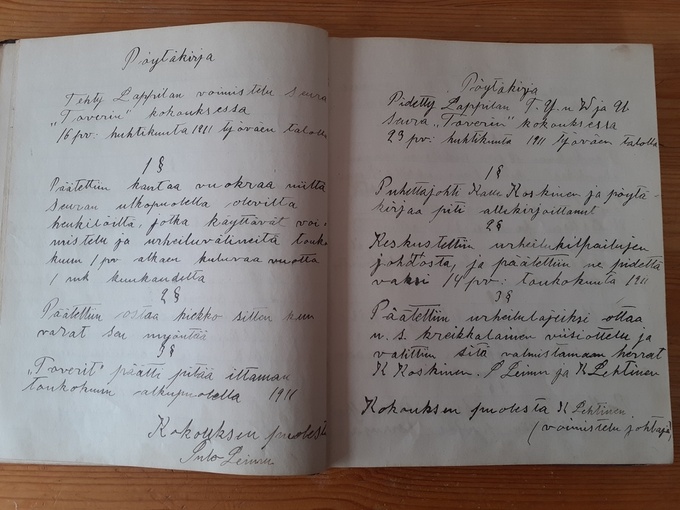 Pöytäkirja
Tehty Lappilan voimistelu seura
"Toverin" kokouksessa
16 pv: huhtikuuta 1911 työväen talolla
1 §
Päätettiin kantaa vuokraa niiltä
seuran ulkopuolella olevilta
henkilöiltä, jotka käyttävät voi-
mistelu ja urheiluvälineitä touko
kuun 1 pv alkaen kuluvaa vuotta
1 mk kuukaudelta
2 §
Päätettiin ostaa kiekko sitten kun
varat sen myöntää
3 §
"Toverit" päätti pitää iltaman
toukokuun alkupuolella 1911
Kokouksen puolesta
Leinun
Pöytäkirja
Pidetty Lappilan T. Y. n V ja U
Seura "Toverin" kokouksessa
23 pv: huhtikuuta 1911 työväen talolla
1 §
Puhettajohti Kalle Koskinen ja pöytä-
kirjaa piti allekirjoittanut
2 §
Keskusteltiin urheilukilpailujen
johdosta, ja päätettiin ne pidettä
väksi 14 pv: toukokuuta 1911
3 §
Päätettiin urheilulajeiksi ottaa
n. s. kreikkalainen viisiottelu ja
valittiin sitä valmistamaan herrat
K Koskinen. Leinun ja K Lehtinen
Kokouksen puolesta K Lehtinen
(voimistelu johtaja)